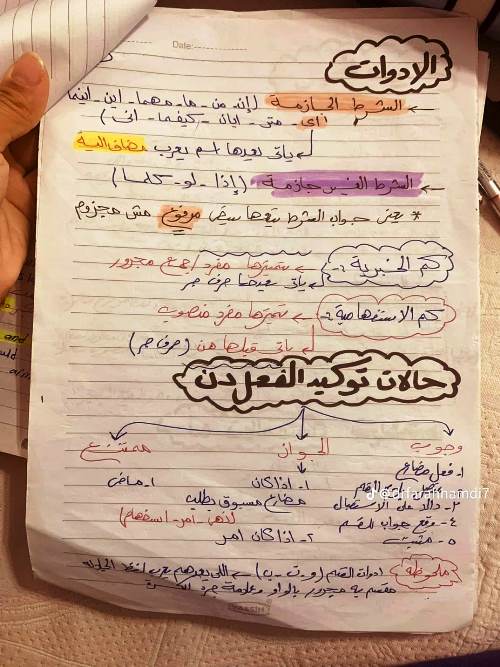 Date:
الادوات
← الشرط الجازمة (إن - من - ما - مهما - اين - اينما
أي - متى - ايان - كيفما - انى)
ياتى بعدها اسم يعرب مضاف الية
← الشرط الغير جازمة (إذا - لو - كلما)
* يعنى جواب الشرط بيبقى مرفوع مش مجزوم
كم الخبرية :- تمييزها مفرد / جمع مجرور
ياتى بعدها حرف جر
كم الاستفهامية :- تمييزها مفرد منصوب
ياتى قبلها من (حرف جر)
حالات توكيد الفعل دن
وجوب
الجواز
ممتنع
١- فعل مضارع
القسم
٣- دالا على الاستقبال
٤- وقع جواب للقسم
٥- مثبت
١- اذا كان
مضارع مسبوق بطلب
لا نهى - امر - استفهام
٢- اذا كان امر
١- ماضى
@drfarahhamdi7
ملحوظة ادوات القسم (و - ت - ب) ← اللى بعدهم يعرب لفظ الجلالة
مقسم به مجرور بالواو وعلامة جره الكسرة